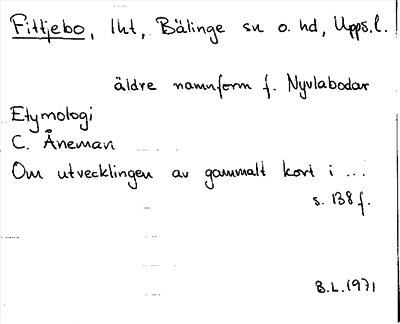 Fittjebo, lht, Bälinge sn o. hd, Upps. l.
äldre namnform f. Nyvlabodar
Etymologi
C. Åneman
Om utvecklingen av gammalt kort i ...
s. 138 f.
B.L. 1971